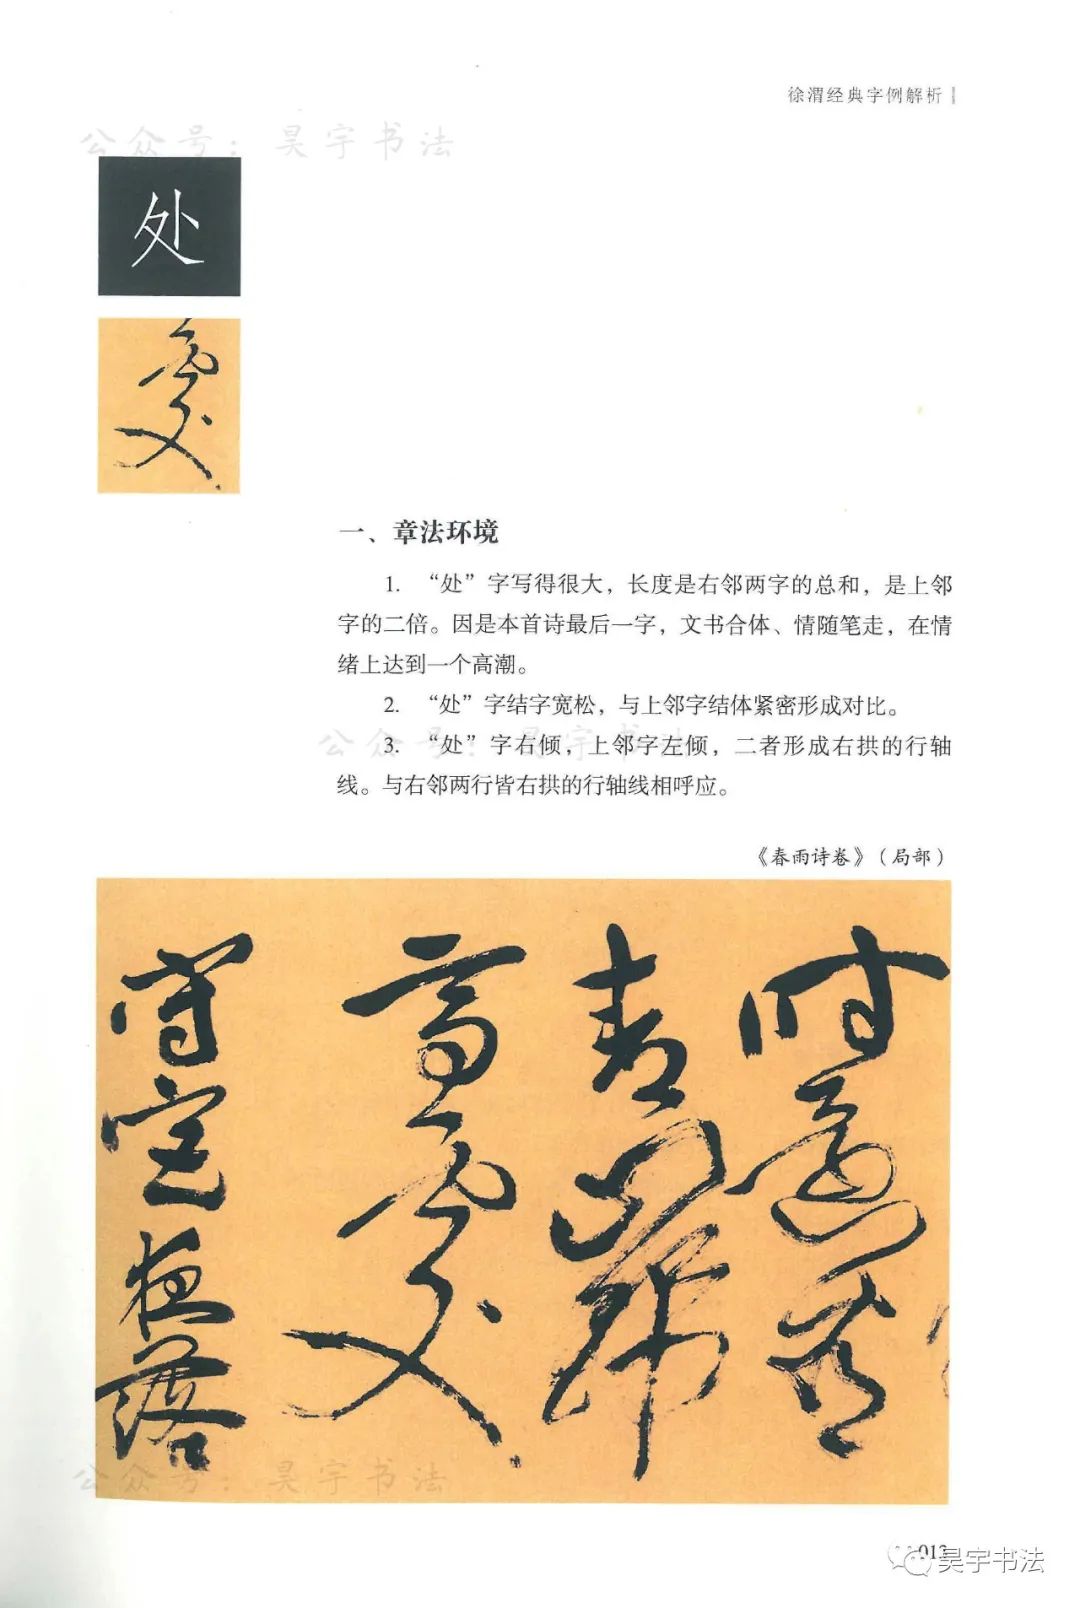 徐渭经典字例解析
公众号：昊宇书法
处
一、章法环境
1. “处”字写得很大，长度是右邻两字的总和，是上邻
字的二倍。因是本首诗最后一字，文书合体、情随笔走，在情
绪上达到一个高潮。
2. “处”字结字宽松，与上邻字结体紧密形成对比。
公众号：昊宇书法
3. “处”字右倾，上邻字左倾，二者形成右拱的行轴
线。与右邻两行皆右拱的行轴线相呼应。
《春雨诗卷》（局部）
高处
公众号：昊宇书法
013
昊宇书法